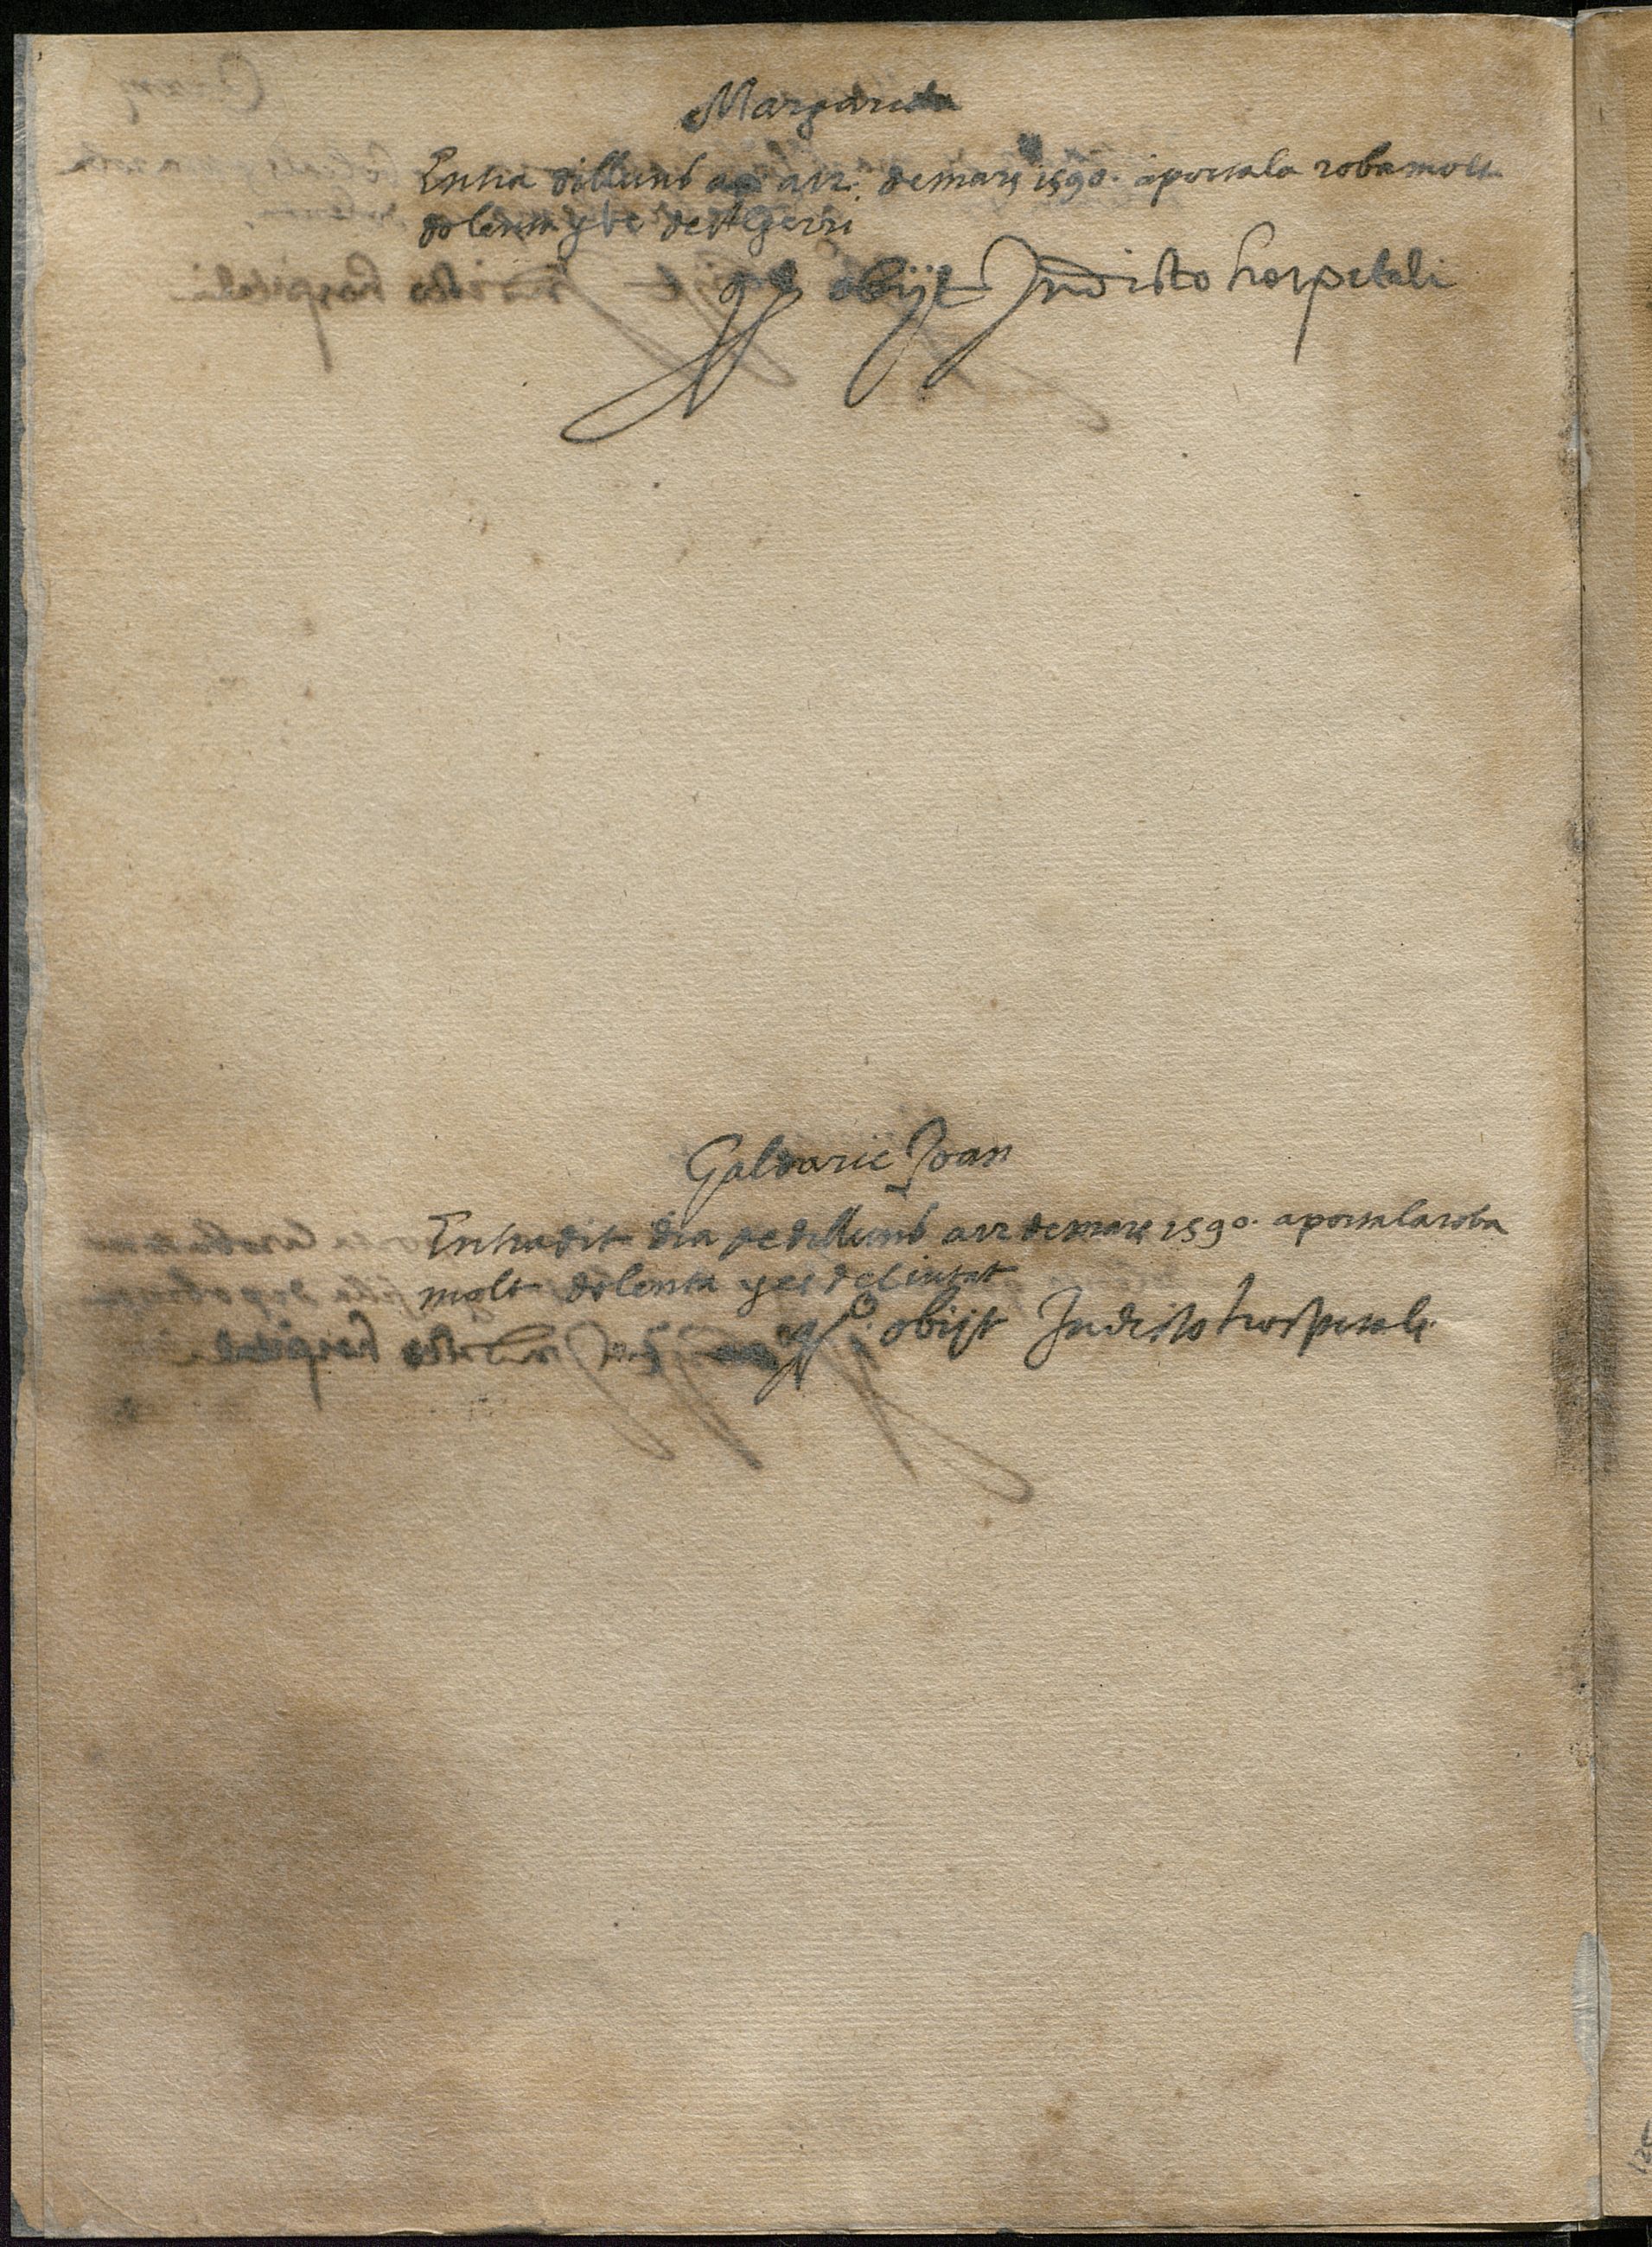 Margarida
Entra dilluns a de mars 1590. aporta la roba molt
dolenta y be de Algerri
obijt In dicto hospitali
Galdaric Joan
Entra dit dia de dilluns a de mars 1590. aporta la roba
molt dolenta y es del
obijt In dicto hospitali